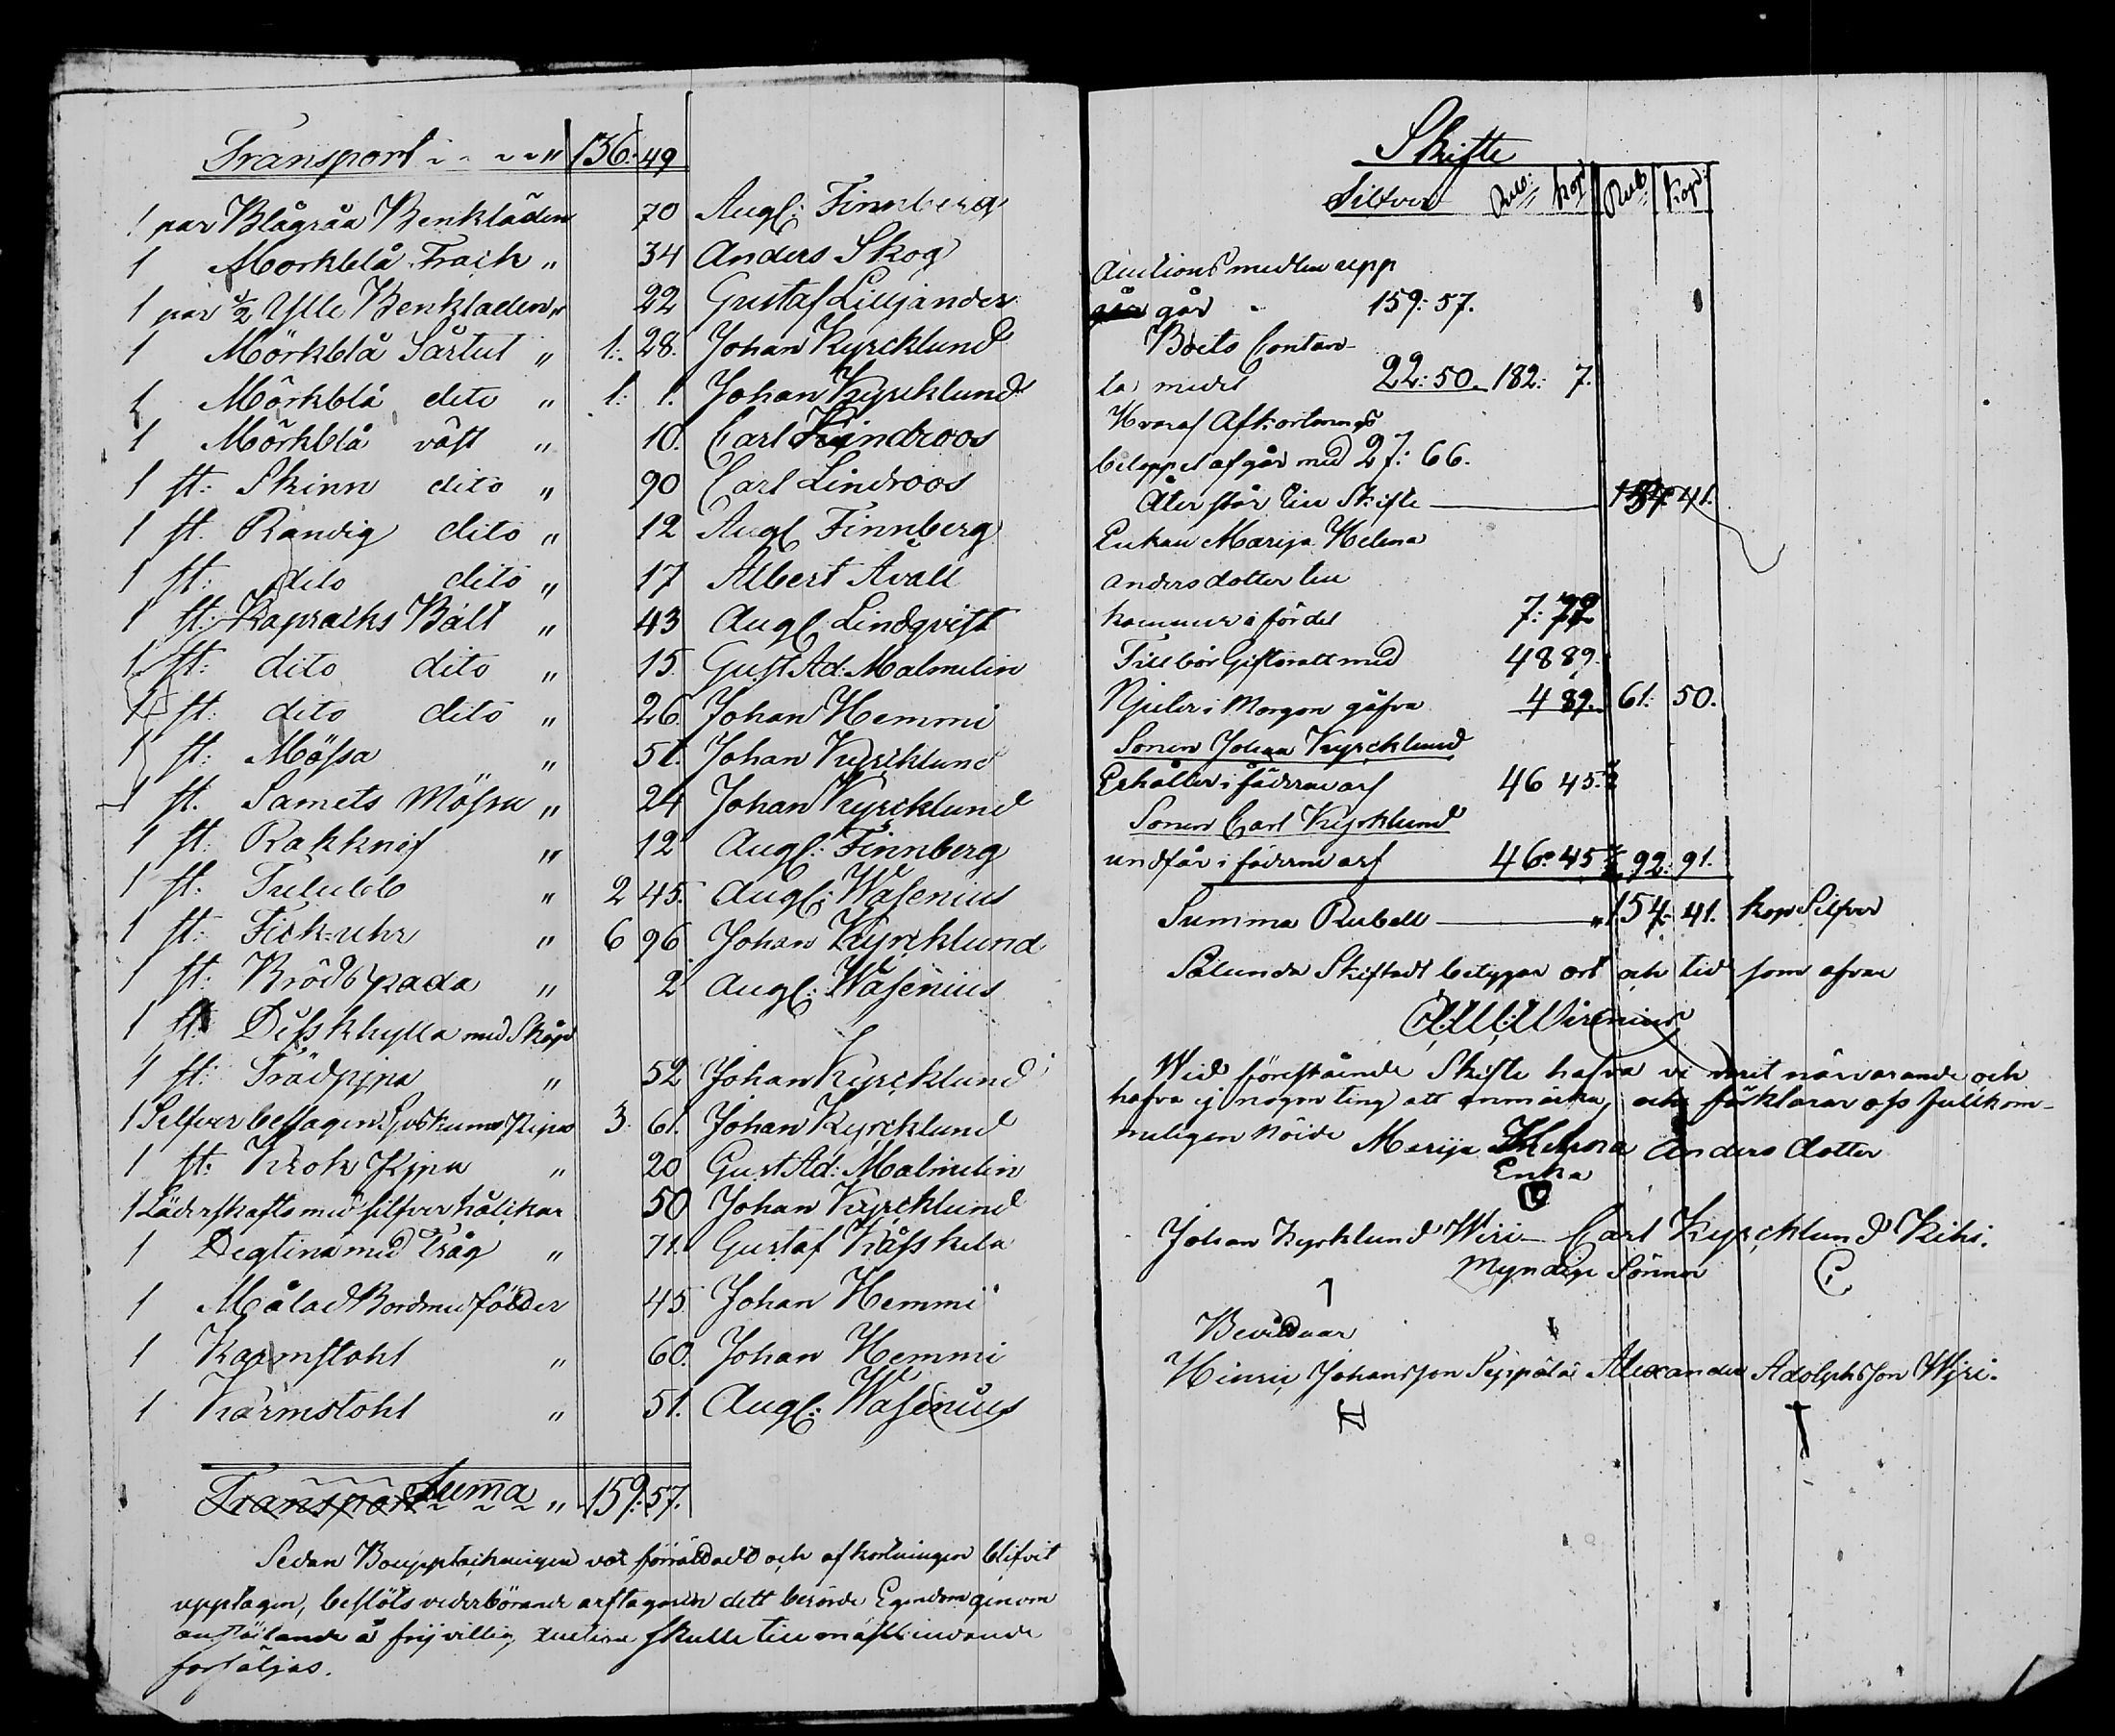 Transport " 136: 49
1 par Blågråa Benkläden 70 Augl: Finnberg
1 Morkblå Frack " 34 Anders Skog
1 par ½ Ylle Benkladen " 22 Gustaf Liljander
1 Mörkblå Sårtut " 1: 28. Johan Kyrcklund
1 Mörkblå dito " 1: 1. Johan Kyrcklund
1 Mörkblå väst " 10. Carl Lindroos
1 st: Skinn dito " 90 Carl Lindroos
1 st. Randig dito " 12 Augl Finnberg
1 st: dito dito " 17 Albert Avall
1 st: Kapraiks Bält " 43 Augl. Lindqvist
1 st: dito dito " 15. Gust Ad: Malmelin
1 st: dito dito " 26. Johan Hemmi
1 st: Mössa " 51. Johan Kyrcklund
1 st. Samets Mössa " 24 Johan Kyrcklund
1 st: Rakknif " 12 Augl: Finnberg
1 st: Tulubb " 2 45. Augl: Wasenius
1 st: Fick-uhr " 6 96. Johan Kyrcklund
1 st: Brödspada " 2 Augl: Wasenius
1 st: Disskhylla med Skåp
1 st: Trädpipa " 52 Johan Kyrcklund
1 Silfverbeslagen Sjöskums Pipa 3. 61. Johan Kyrcklund
1 st: Krok Pipa " 20 Gust Ad: Malmelin
1 Läderskafts med silfver hålikar 50 Johan Kyrcklund
1 Degtina med Tråg " 71. Gustaf Kåsskela
1 Målad Bord med földer 45 Johan Hemmi
1 Karmstohl " 60. Johan Hemmi
1 Karmstohl " 51. Augl: Wasenius
Transport Suma " 159: 57.
Sedan Boupptekningen var förrättadt och afkortningen blifvit
upptagen, beslöts vederbörande arftagaren dett berörde Egendom genom
anställande å frijvillig auction skulle till mästbiudande
forsäljas.
Skifte
Silfver Rub: kop Rub kop:
Auctions medlen upp
går går 159: 57.
Boets Contan-
ta medel 22: 50. 182: 7.
Hvaraf Afkortnings
beloppet afgår med 27: 66.
Återstår till Skifte 154: 41.
Enkan Marija Helena
Andersdotter till
kommer i fördel 7: 72
Tillbör Giftoratt med 48 89.
Njuter i Morgon gåfva 4 89. 61: 50.
Sonen Johan Kyrcklund
Erhåller i fäderne arf 46 45.½
Sonen Carl Kyrklund
undfår i fäderne arf 46: 45½ 92: 91.
Summa Rubell " 154: 41. kop Silfver
Sålunda Skiftadt betygar ort och tid som ofvan
Wirenius
Wid förestående Skifte hafva vi varit närvarande och
hafva ej någon ting att anmärka, och förklarar oss fullkom-
meligen nöide Marija Helena Anders dotter
Enka
Johan Kyrklund Wiri- Carl Kyrcklund Kihi.
Myndige Sönner
Bevittnar
Hinric Johansson Seppälä Alexander Adolphsson Wjri.